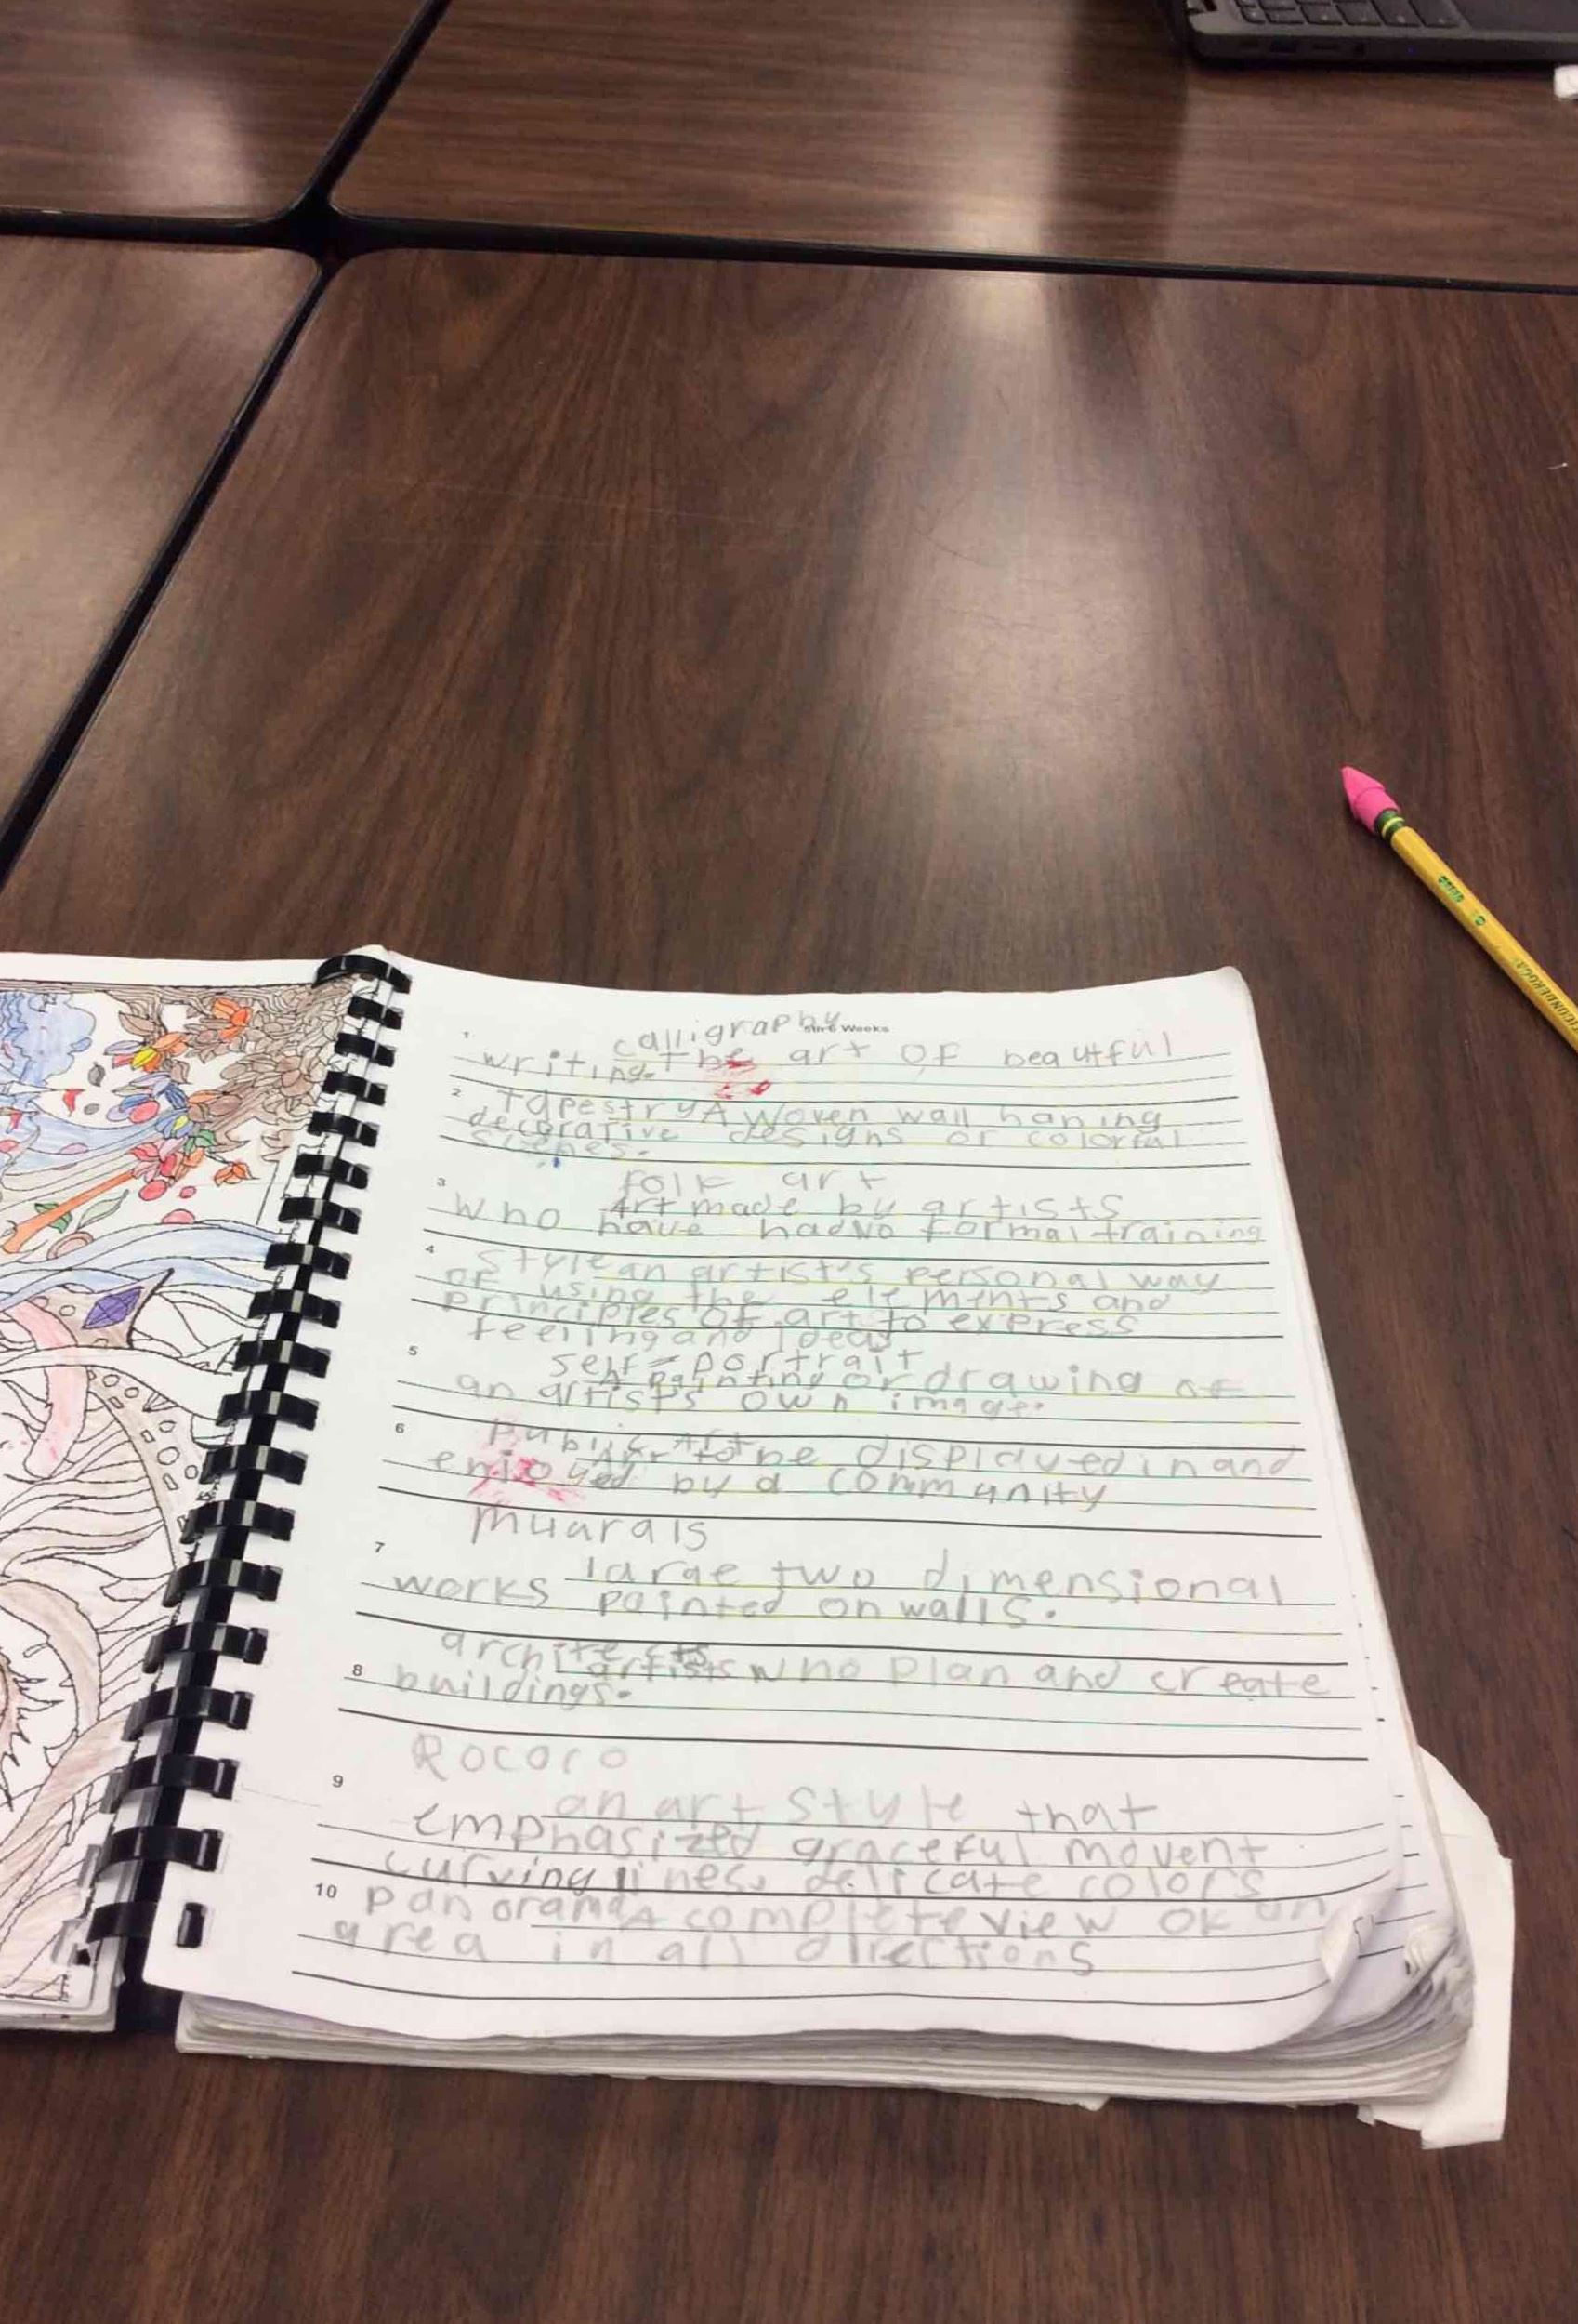 calligraphy
Weeks
1
writing. The art OF beautful
2
tapestry A woven wall haning
decorative designs or colorful
scenes.
3
folk art
Art made by artists
who have had no formal training
4
Style an artist's personal way
of using the elements and
principles of art to express
feeling and ideas
5
self-portrait
A painting or drawing of
an artists own image.
6
Public Art
Art to be displayed in and
enjoyed by a community
muarals
7
large two dimensional
works painted on walls.
architects
8
artists who plan and create
buildings.
Rococo
9
an art style that
emphasized graceful movent
curving lines, delicate colors
10
panorama A complete view of an
area in all directions
TICONDEROGA